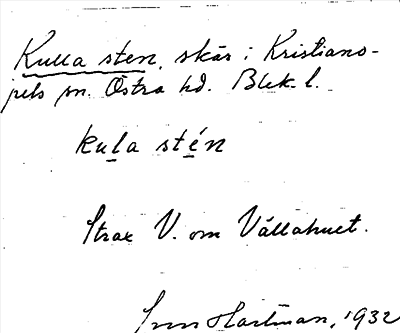 Kulla sten, skär i Kristiano-
pels sn. Östra hd. Blek. l.
kula stén
Strax V. om Vållahuet.
Sven Hartman, 1932